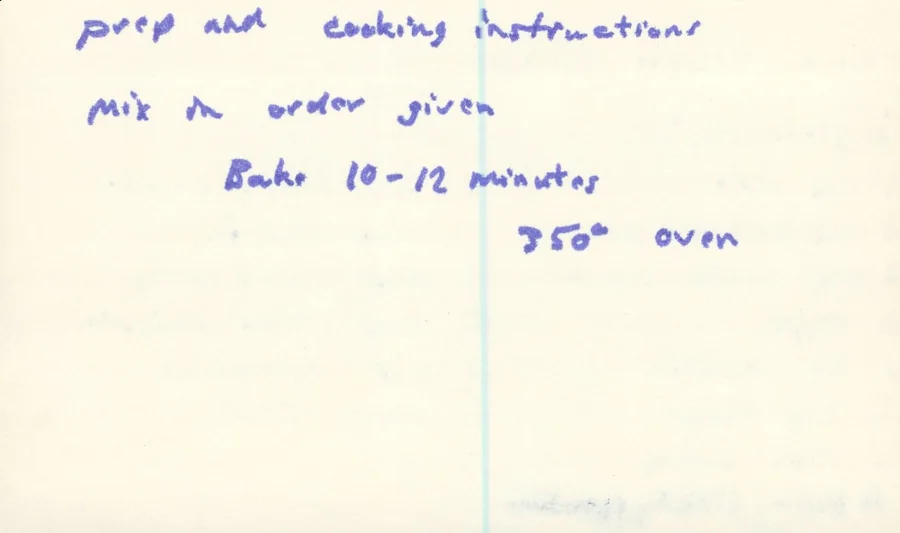 prep and cooking instructions
Mix in order given
Bake 10-12 minutes
350° oven